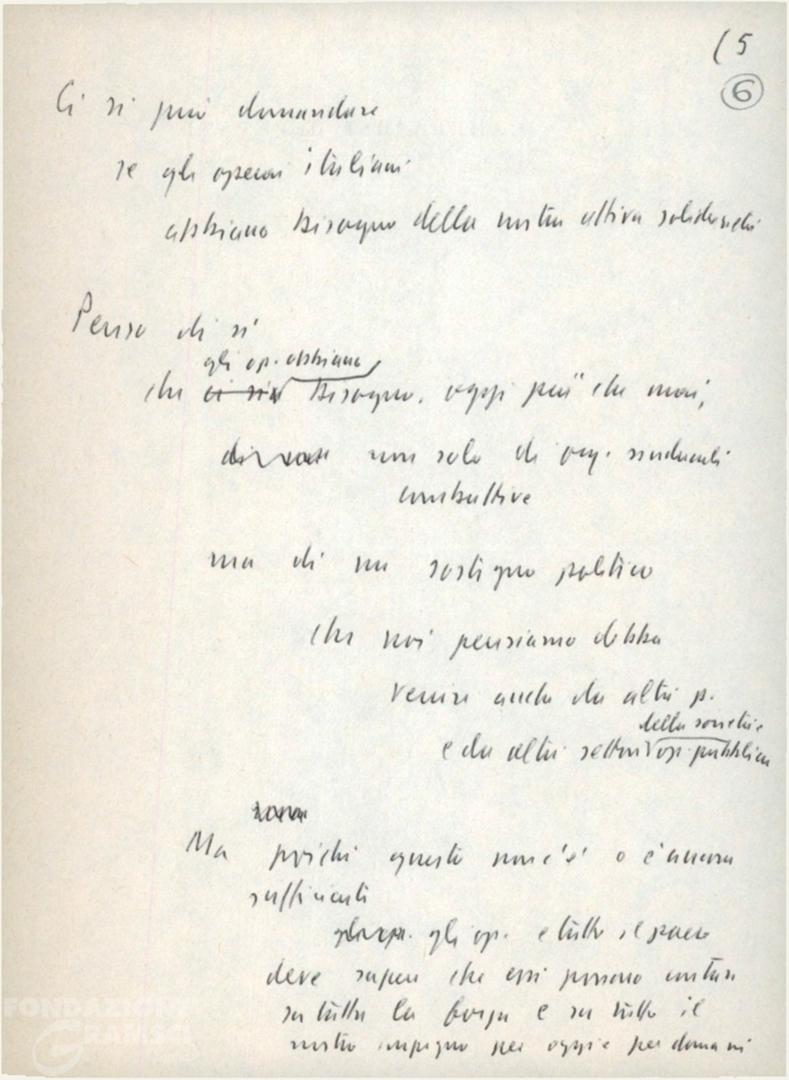 (5
6
Ci si può domandare
se gli operai italiani
abbiano bisogno della nostra attiva solidarietà
Penso di sì
gli op. abbiano
che ci sia bisogno, oggi più che mai,
non solo di org. sindacali
combattive
ma di un sostegno politico
che noi pensiamo debba
venire anche da altri p.
della società e
e da altri settori op. pubblica
Ma poiché questo non c'è o è ancora
sufficienti
gli op. gli op. e tutto il paese
deve sapere che essi possono contare
su tutta la forza e su tutto il
nostro impegno per oggi e per domani
FONDAZIONE
GRAMSCI